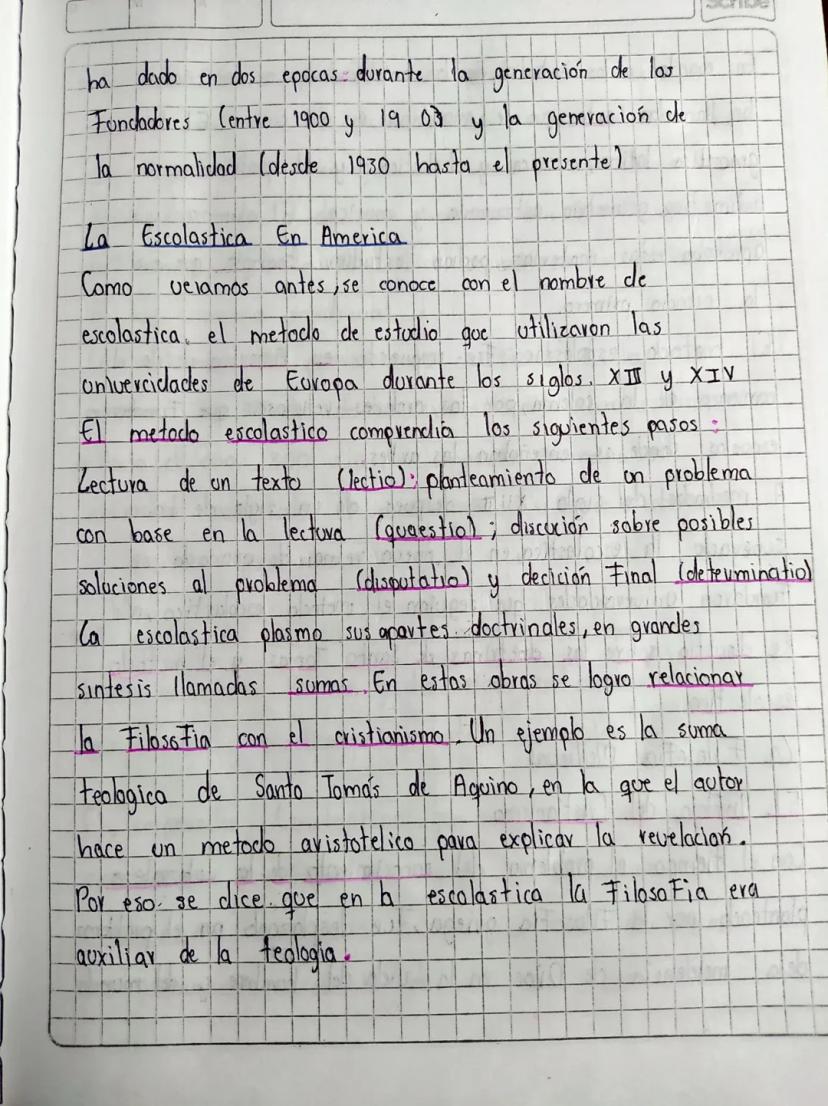 Scribe
ha dado en dos epocas: durante la generación de los
Fundadores (entre 1900 y 19 03 y la generación de
la normalidad (desde 1930 hasta el presente)
La Escolastica En America
Como veiamos antes, se conoce con el nombre de
escolastica. el metodo de estudio que utilizaron las
univercidades de Europa durante los siglos. XIII y XIV
El metodo escolastico comprendia los siguientes pasos:
Lectura de un texto (lectio); planteamiento de un problema
con base en la lectura (quaestio); discución sobre posibles
soluciones al problema (disputatio) y decición Final (determinatio)
La escolastica plasmo sus apartes doctrinales, en grandes
sintesis llamadas sumas. En estas obras se logro relacionar
la Filosofia con el cristianismo. Un ejemplo es la suma
teologica de Santo Tomás de Aquino, en la que el autor
hace un metodo aristotelico para explicar la revelación.
Por eso. se dice. que en la escolastica la FilosoFia era
auxiliar de la teologia.